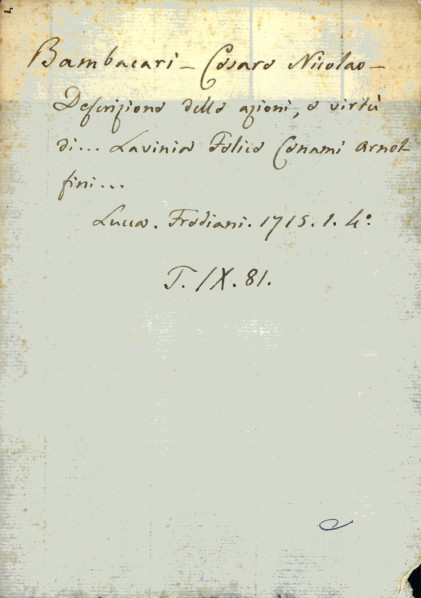 Bambacari - Cesare Nicolao -
Descrizione delle azioni, e virtù
di... Lavinia Felice Cenami Arnol
fini...
Lucca. Frediani. 1715. 1. 4°
T. IX. 81.